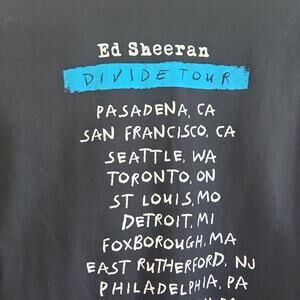 Ed Sheeran
DIVIDE TOUR
PASADENA, CA
SAN FRANCISCO, CA
SEATTLE, WA
TORONTO, ON
ST LOUIS, MO
DETROIT, MI
FOXBOROUGH, MA
EAST RUTHERFORD, NJ
PHILADELPHIA, PA